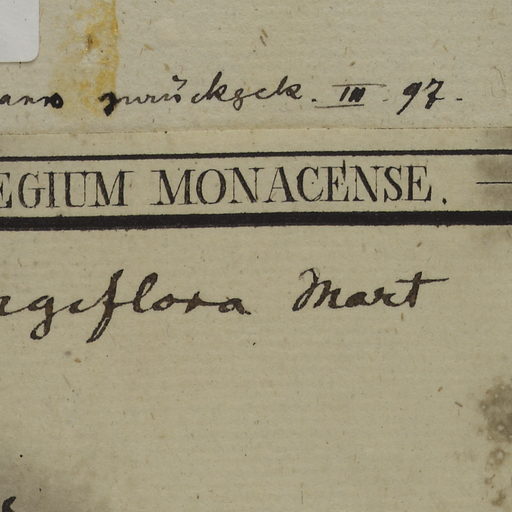 zurückgek. III. 97.
EGIUM MONACENSE.
giflora Mart